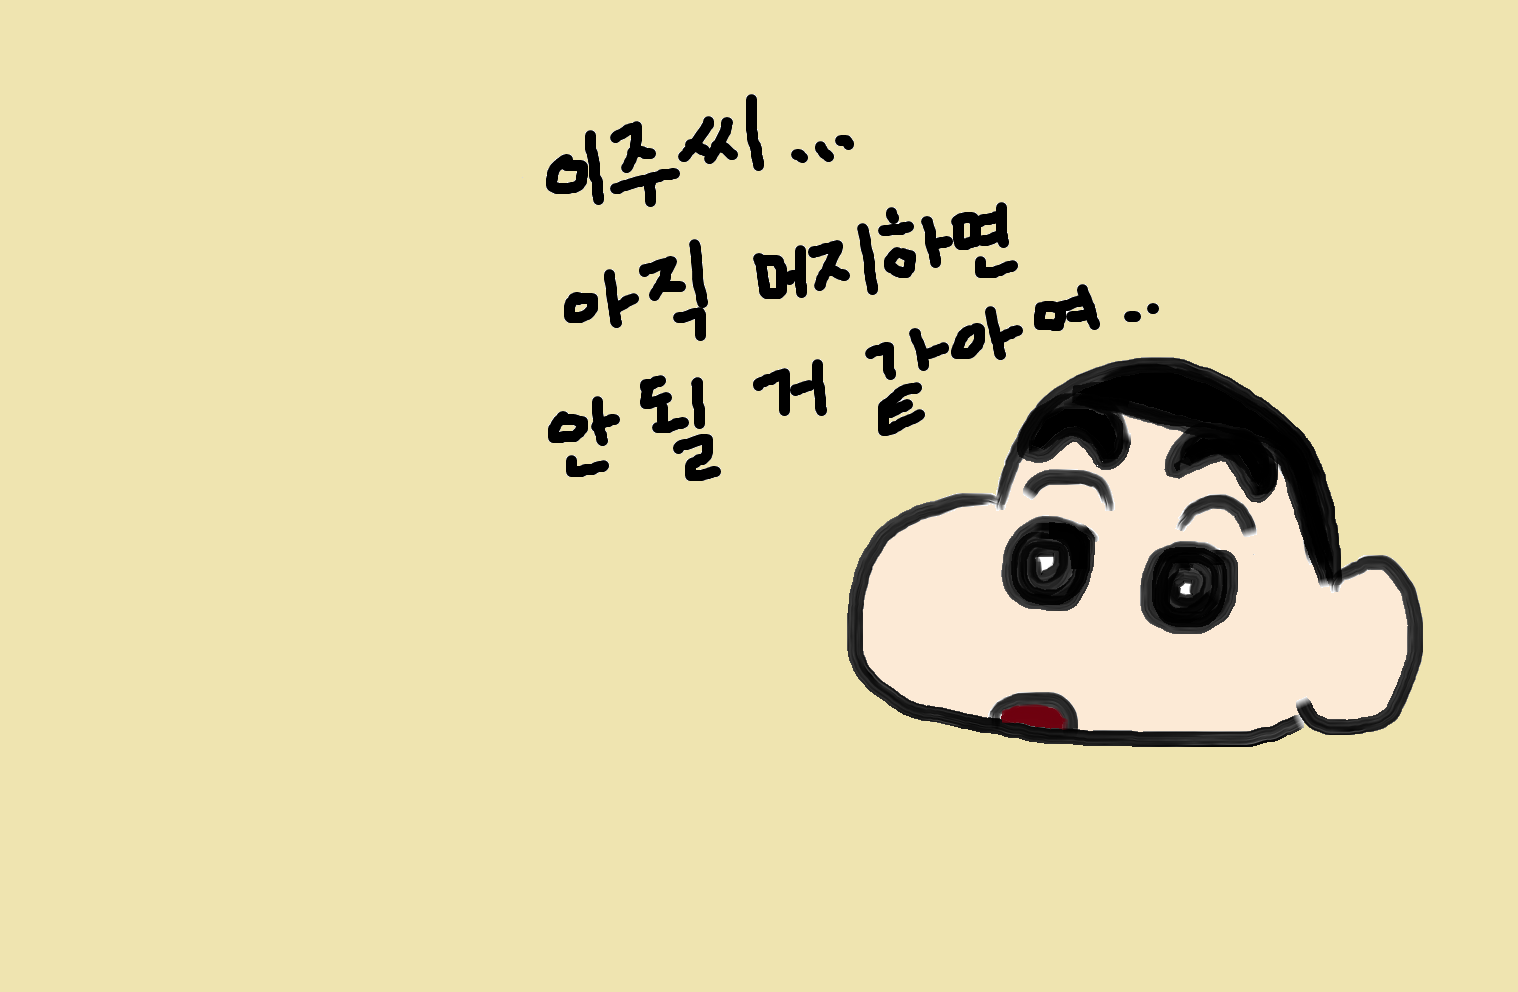 이주씨...
아직 머지하면
안 될 거 같아여..